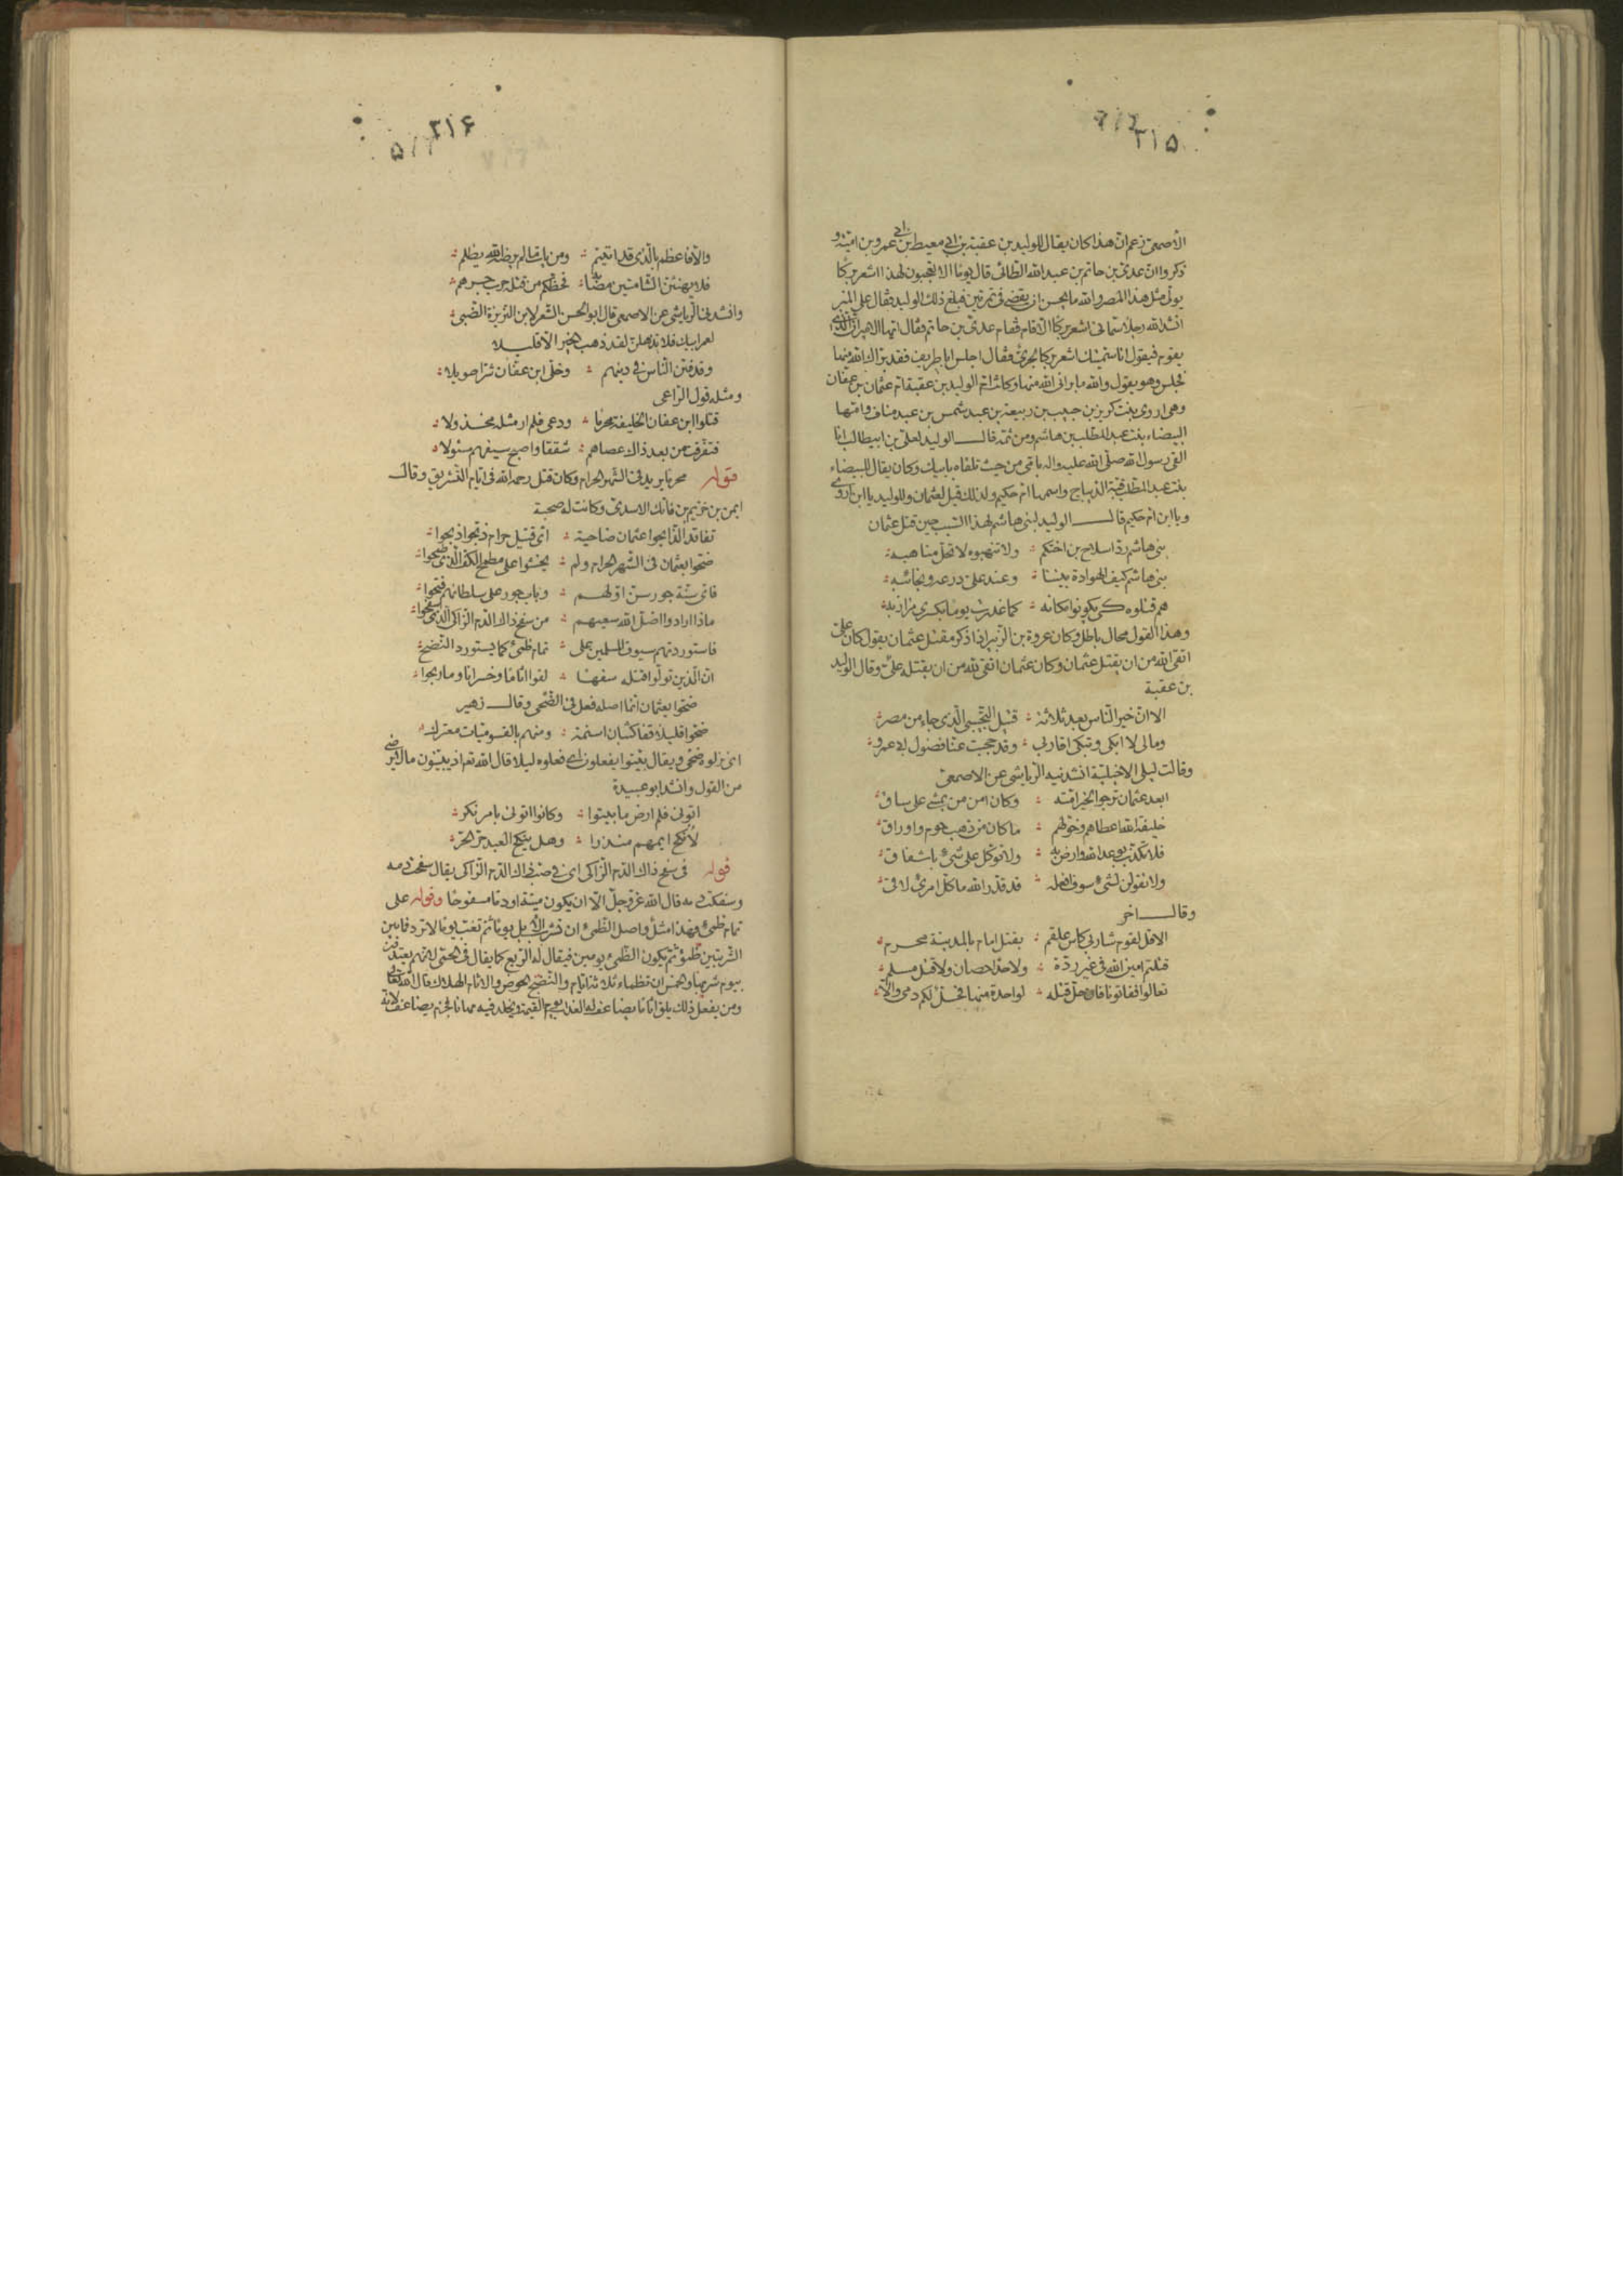 ٣١۵
الأصمعى زعم ان هذا كان يقال للوليد بن عقبة بن ابى معيط بن ابى عمرو بن امية و
ذكروا ان عدى بن حاتم بن عبد الله الطائى قال يوما الا تعجبون لهذا اشعر بركا
يولى مثل هذا المصر والله ما يحسن ان يقضى فى تمرتين فبلغ ذلك الوليد فقال على المنبر
انشد الله رجلا سمانى اشعر بركا الا قام فقام عدى بن حاتم فقال ايها الامير ان الذى
يقوم فيقول انا سميتك اشعر بركا لجرىء فقال اجلس ابا طريف فقد براك الله منها
فجلس وهو يقول والله ما برانى الله منها وكانت ام الوليد بن عقبة ام عثمان بن عفان
وهى اروى بنت كريز بن حبيب بن ربيعة بن عبد شمس بن عبد مناف وامها
البيضاء بنت عبد المطلب بن هاشم ومن ثمة قال الوليد لعلى بن ابيطالب انا
القى رسول الله صلى الله عليه واله بامى من حيث تلقاه بابيك وكان يقال للبيضاء
بنت عبد المطلب قبة الديباج واسمها ام حكيم ولذلك قيل لعثمان وللوليد يا ابن اروى
ويا ابن ام حكيم قال الوليد لبنى هاشم لهذا السبب حين قتل عثمان
بنى هاشم ردوا سلاح بن اختكم ولا تنهبوه لا تحل مناهبه
بنى هاشم كيف الهوادة بيننا وعند على درعه ونجائبه
هم قتلوه كى يكونوا مكانه كما غدرت يوما بكسرى مرازبه
وهذا القول محال باطل وكان عروة بن الزبير اذا ذكر مقتل عثمان يقول كان على
اتقى لله من ان يقتل عثمان وكان عثمان اتقى لله من ان يقتله على وقال الوليد
بن عقبة
الا ان خير الناس بعد ثلاثة قتيل التجيبى الذى جاء من مصر
ومالى لا ابكى وتبكى اقاربى وقد حجبت عنا فضول ابى عمرو
وقالت ليلى الاخيلية انشدنيه الرياشى عن الاصمعى
ابعد عثمان ترجو الخير امته وكان امن من يمشى على ساق
خليفة الله اعطاهم وخولهم ما كان من ذهب جوم واوراق
فلا تكذب بوعد الله وارض به ولا توكل على شىء باشفاق
ولا تقولن لشىء سوف افعله قد قدر الله ما كل امرئ لاق
وقال اخر
الا قل لقوم شاربى كاس علقم بقتل امام بالمدينة محرم
قتلتم امين الله فى غير ردة ولا حد احصان ولا قتل مسلم
تعالوا ففاتونا فان حل قتله لواحدة منها فحل لكم دمى والا
٣١۶
والا فاعظم بالذى قد اتيتم ومن يات ما لم يرضه الله يظلم
فلا يهنئن الشامتين مصابه فحظكم من قتله حرب جرهم
وانشدنى الرياشى عن الاصمعى قال ابو الحسن الشعر لابن الغريزة الضبى
لعمر ابيك فلا تذهلن لقد ذهب الخير الا قليلا
وقد فتن الناس فى دينهم وخلى ابن عفان شرا طويلا
ومثله قول الراعى
قتلوا ابن عفان الخليفة محرما ودعى فلم ار مثله مخذولا
فتفرقت من بعد ذاك عصاهم شققا واصبح سيفهم مسلولا
قوله محرما يريد فى الشهر الحرام وكان قتل رحمه الله فى ايام التشريق وقال
ايمن بن خريم بن فاتك الاسدى وكانت له صحبة
تفاقد الذابحوا عثمان ضاحية اى قتيل حرام ذبحوا ذبحوا
ضحوا بعثمان فى الشهر الحرام ولم يخشوا على مطمح الكف الذى طمحوا
فاى سنة جور سن اولهم وباب جور على سلطانهم فتحوا
ماذا ارادوا اضل الله سعيهم من سفح ذاك الدم الزاكى الذى سفحوا
فاستوردتهم سيوف المسلمين على تمام ظمىء كما يستورد النضح
ان الذين تولوا قتله سفها لقوا اثاما وخسرانا وما ربحوا
ضحوا بعثمان انما اصله فعل فى الضحى وقال زهير
ضحوا قليلا قفا كثبان اسنمة ومنهم بالقسوميات معترك
اى نزلوه ضحى ويقال بيتوا يفعلون اى فعلوه ليلا قال الله تع اذ يبيتون ما لا يرضى
من القول وانشد ابو عبيدة
اتونى فلم ارض ما بيتوا وكانوا اتونى بامر نكر
لأنكح ايمهم منذرا وهل ينكح العبد حر لحر
قوله فى سفح ذاك الدم الزاكى اى فى صب ذاك الدم الزاكى يقال سفحت دمه
وسفكت دمه قال الله عز وجل الا ان يكون ميتة او دما مسفوحا وقوله على
تمام ظمىء فهذا مثل واصل الظمىء ان تشرب الابل يوما ثم تغب يوما لا ترد فما بين
الشربتين ظمؤ ثم يكون الظمىء يومين فيقال له الربع كما يقال فى الحمى لانهم يعتدون
بيوم شربها والخمس ان تظماء ثلاثة ايام والنضح الحوض والاثام الهلاك قال الله تعالى
ومن يفعل ذلك يلق اثاما يضاعف له العذاب يوم القيمة ويخلد فيه مهانا فجزم يضاعف لانه